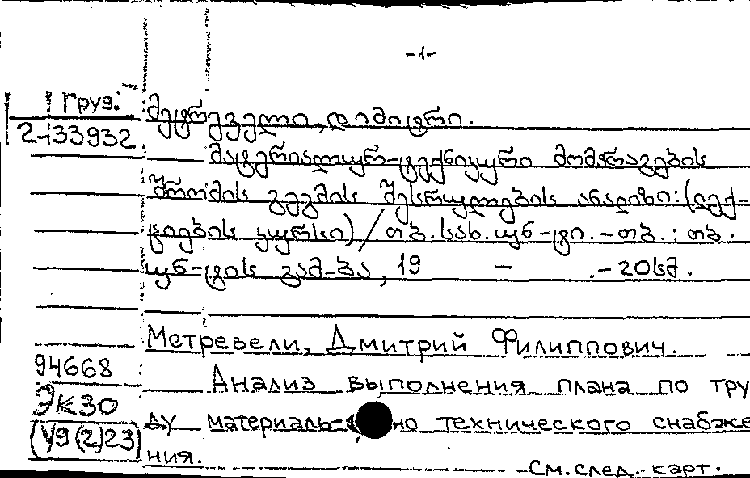 -1-
Груз.
მეტრეველი, დიმიტრი.
2-33932
მატერიალურ-ტექნიკური მომარაგების
შრომის გეგმის შესრულების ანალიზი: (ლექ-
ციების კურსი) / თბ. სახ. უნ-ტი. - თბ.: თბ.
უნ-ტის გამ-ბა, 19 - . - 20სმ.
Метревели, Дмитрий Филиппович.
94668
Анализ выполнения плана по тру
Эк30
ду материально технического снабже
(У9(2)23)
ния.
См. след. карт.